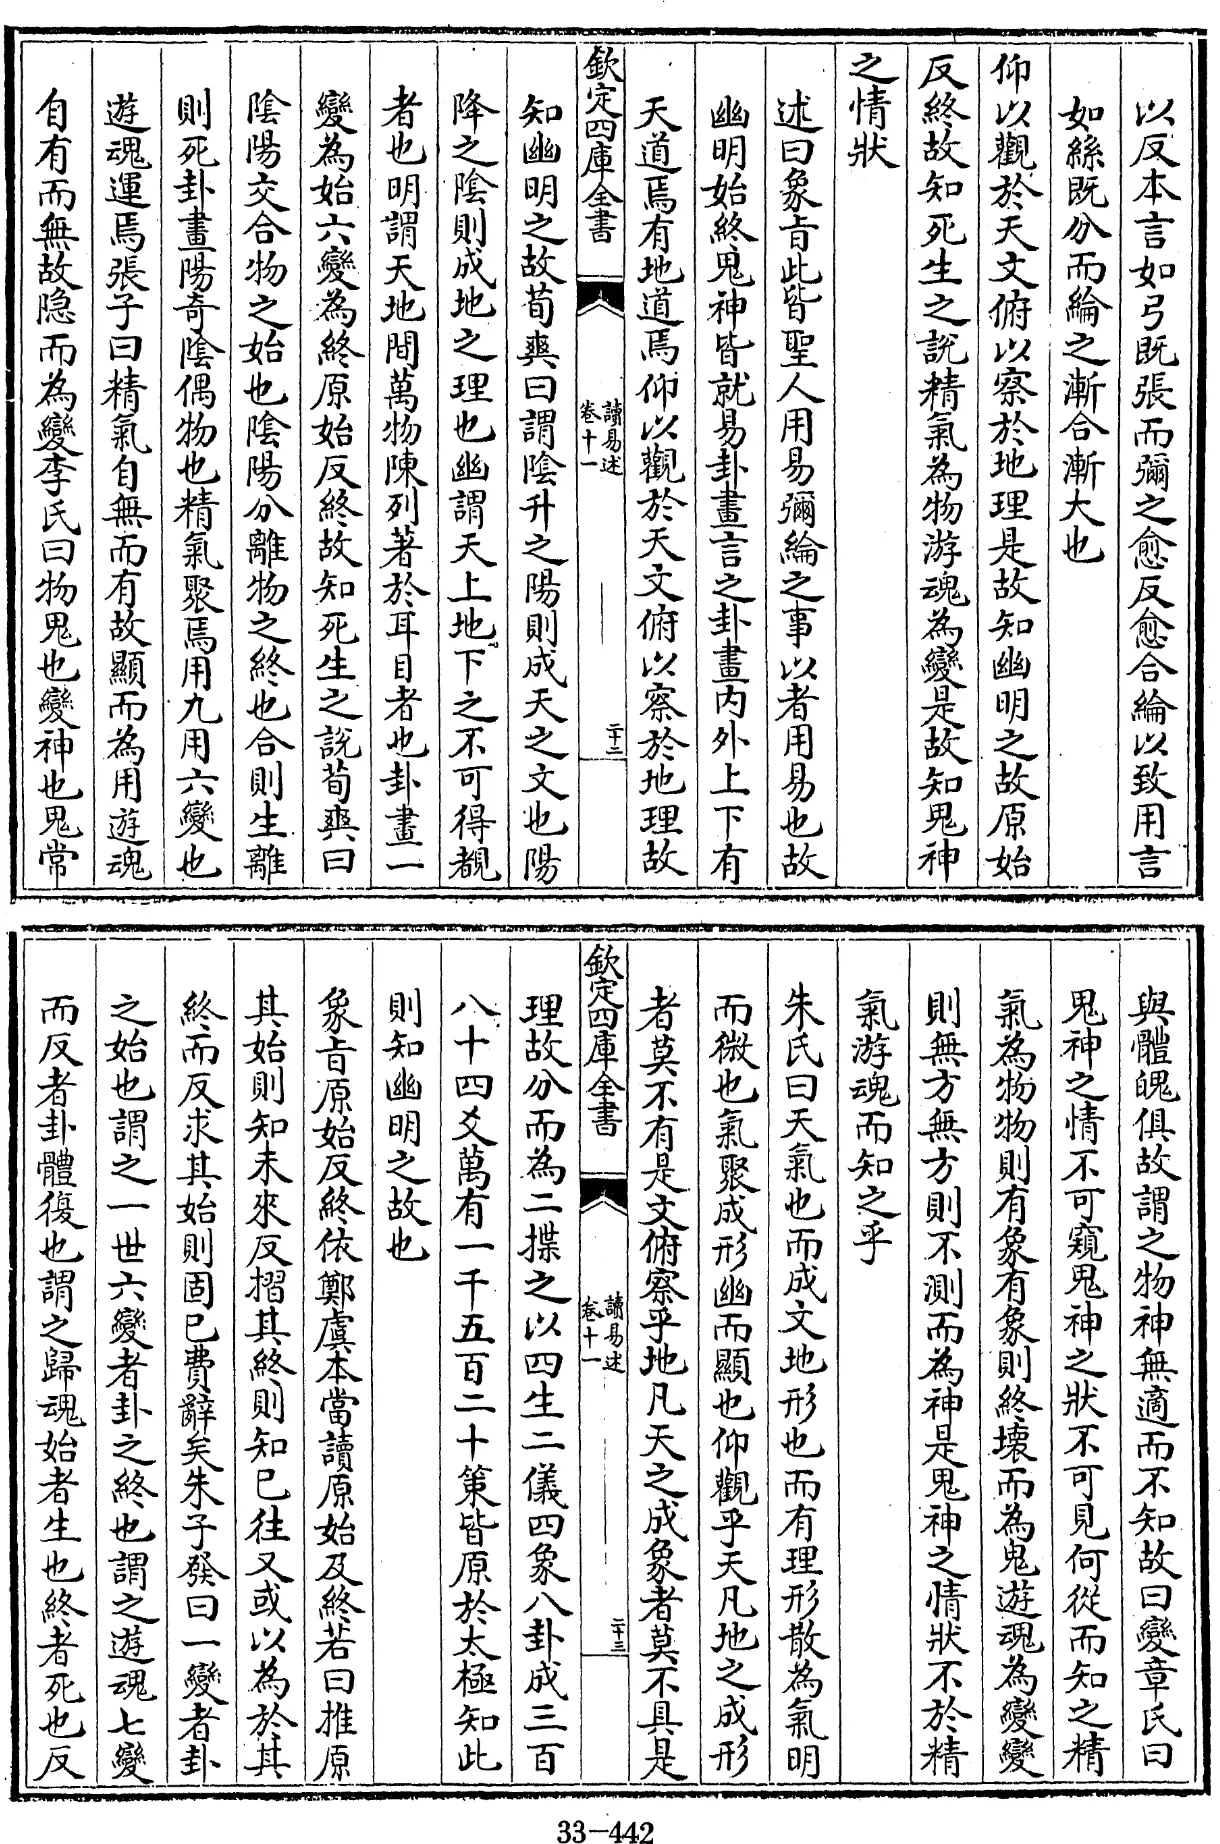 以反本言如弓既張而彌之愈反愈合綸以致用言
如絲既分而綸之漸合漸大也
仰以觀於天文俯以察於地理是故知幽明之故原始
反終故知死生之說精氣為物游魂為變是故知鬼神
之情狀
述曰象旨此皆聖人用易彌綸之事以者用易也故
幽明始終鬼神皆就易卦畫言之卦畫內外上下有
天道焉有地道焉仰以觀於天文俯以察於地理故
欽定四庫全書
讀易述
卷十一
二十二
知幽明之故荀爽曰謂陰升之陽則成天之文也陽
降之陰則成地之理也幽謂天上地下之不可得覩
者也明謂天地間萬物陳列著於耳目者也卦畫一
變為始六變為終原始反終故知死生之說荀爽曰
陰陽交合物之始也陰陽分離物之終也合則生離
則死卦畫陽奇陰偶物也精氣聚焉用九用六變也
遊魂運焉張子曰精氣自無而有故顯而為用遊魂
自有而無故隱而為變李氏曰物鬼也變神也鬼常
與體魄俱故謂之物神無適而不知故曰變章氏曰
鬼神之情不可窺鬼神之狀不可見何從而知之精
氣為物物則有象有象則終壞而為鬼遊魂為變變
則無方無方則不測而為神是鬼神之情狀不於精
氣游魂而知之乎
朱氏曰天氣也而成文地形也而有理形散為氣明
而微也氣聚成形幽而顯也仰觀乎天凡地之成形
者莫不有是文俯察乎地凡天之成象者莫不具是
欽定四庫全書
讀易述
卷十一
二十三
理故分而為二揲之以四生二儀四象八卦成三百
八十四爻萬有一千五百二十策皆原於太極知此
則知幽明之故也
象旨原始反終依鄭虞本當讀原始及終若曰推原
其始則知未來反摺其終則知已往又或以為於其
終而反求其始則固已費辭矣朱子發曰一變者卦
之始也謂之一世六變者卦之終也謂之遊魂七變
而反者卦體復也謂之歸魂始者生也終者死也反
33-442